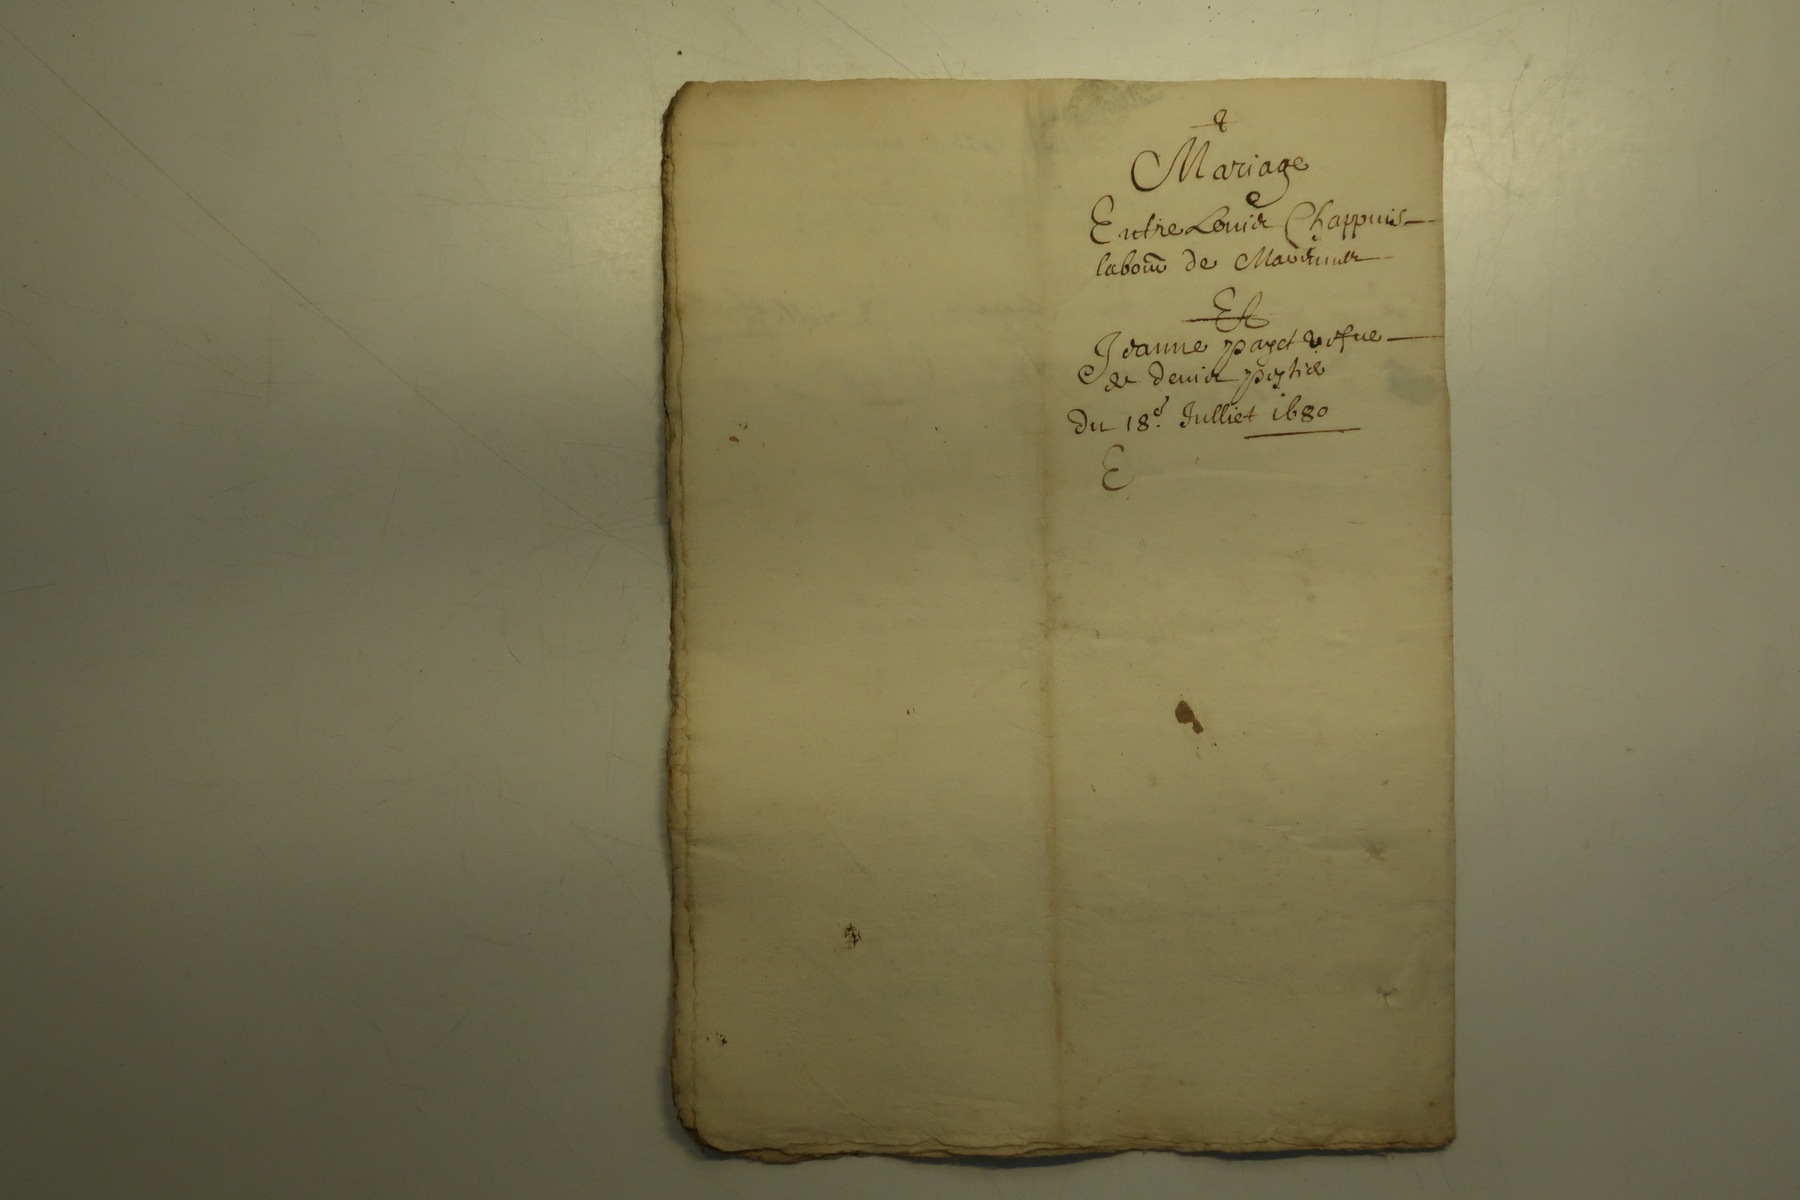 Mariage
Entre Louis Chappuis
labour de
Et
Jeanne payet vefue
de denis
Du 18e. Julliet 1680
E